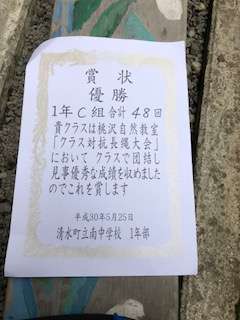 賞状
優勝
1年C組合計48回
貴クラスは桃沢自然教室
「クラス対抗長縄大会」
において クラスで団結し
見事優秀な成績を収めました
のでこれを賞します
平成30年5月25日
清水町立南中学校 1年部